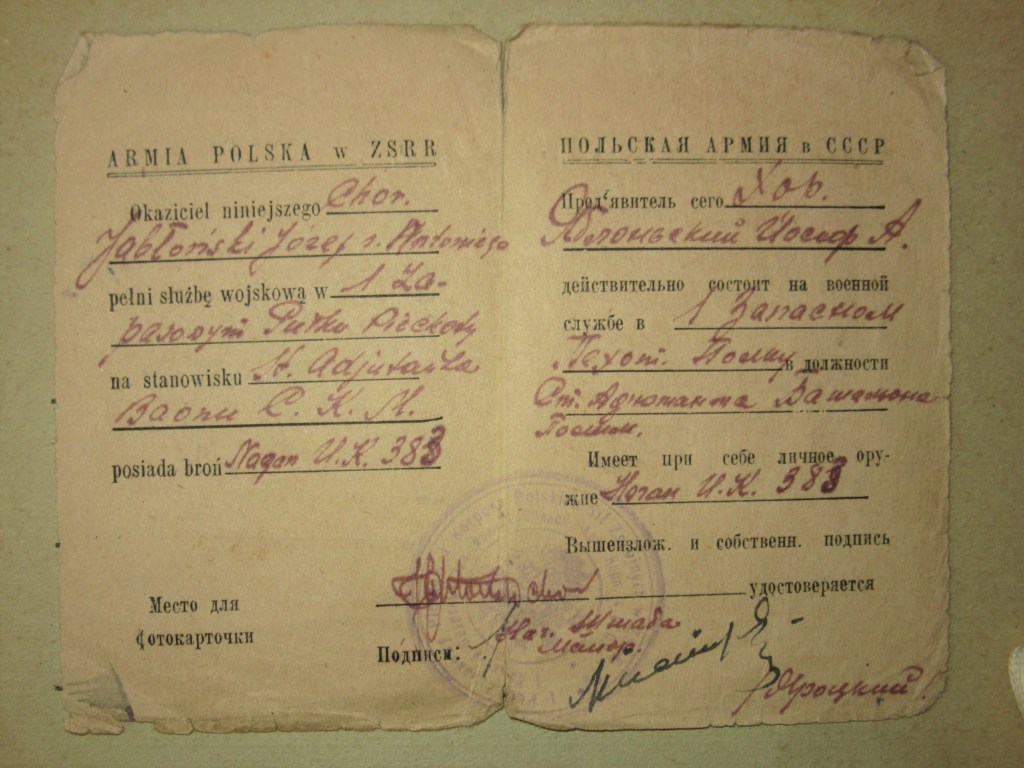 ARMIA POLSKA w ZSRR
Okaziciel niniejszego Chor.
Jabłoński Józef s. Antoniego
pełni służbę wojskową w 1 Za-
pasowym Pułku Piechoty
na stanowisku St. Adjutanta
Baonu C. K. M.
posiada broń Nagan U.K. 383
Место для
фотокарточки
ПОЛЬСКАЯ АРМИЯ в СССР
Пред'явитель сего Хор.
Яблоньский Йосиф А.
действительно состоит на военной
службе в 1 Запасном
Пехот. Полку в должности
Ст. Адютанта Батальона
Имеет при себе личное ору-
жие Наган U.K. 383
Вышеизлож. и собственн. подпись
удостоверяется
Подписи: Нач. Штаба
Майор.